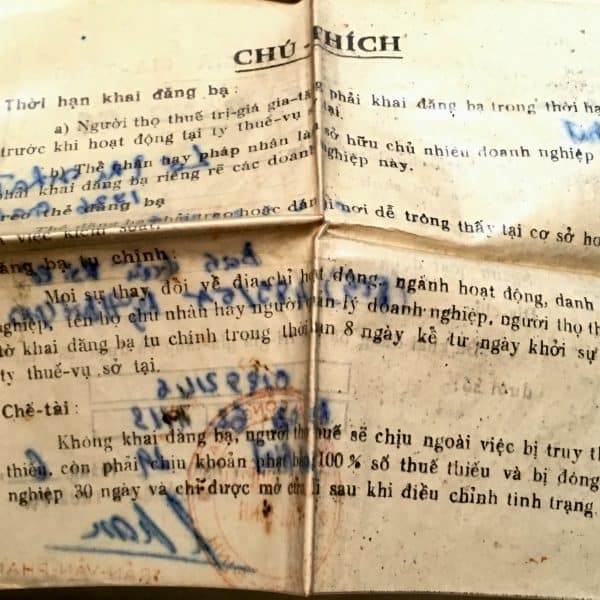 CHÚ THÍCH
Thời hạn khai đăng bạ :
a) Người thọ thuế trị-giá gia-tă phải khai đăng bạ trong thời hạ
trước khi hoạt động tại ty thuế-vụ tại.
b) Thể nhân hay pháp nhân là sở hữu chủ nhiều doanh nghiệp
phải khai đăng bạ riêng rẽ các doanh nghiệp này.
reo thẻ đăng bạ
phải treo hoặc dán nơi dễ trông thấy tại cơ sở ho
việc kiểm soát.
đăng bạ tu chỉnh :
Mọi sự thay đổi về địa-chỉ hoạt động, ngành hoạt động, danh
nghiệp, tên họ chủ nhân hay người quản-lý doanh-nghiệp, người thọ th
tờ khai đăng bạ tu chỉnh trong thời hạn 8 ngày kể từ ngày khởi sự
ty thuế-vụ sở tại.
Chế-tài :
Không khai đăng bạ, người thọ thuế sẽ chịu ngoài việc bị truy th
thiếu, còn phải chịu khoản phạt 100% số thuế thiếu và bị đóng
nghiệp 30 ngày và chỉ được mở cửa lại sau khi điều chỉnh tình trạng.
TRẦN-VĂN-PHA